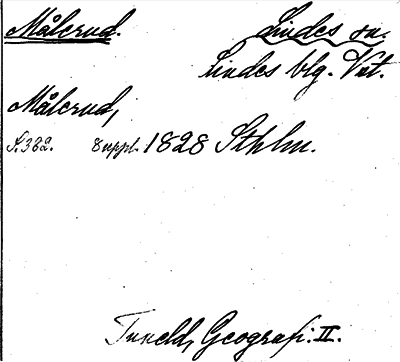 Målerud. Lindes sn.
Lindes blg. Vst.
Målerud,
S. 382. 8 uppl. 1828 Sthlm.
Tuneld, Geografi. II.